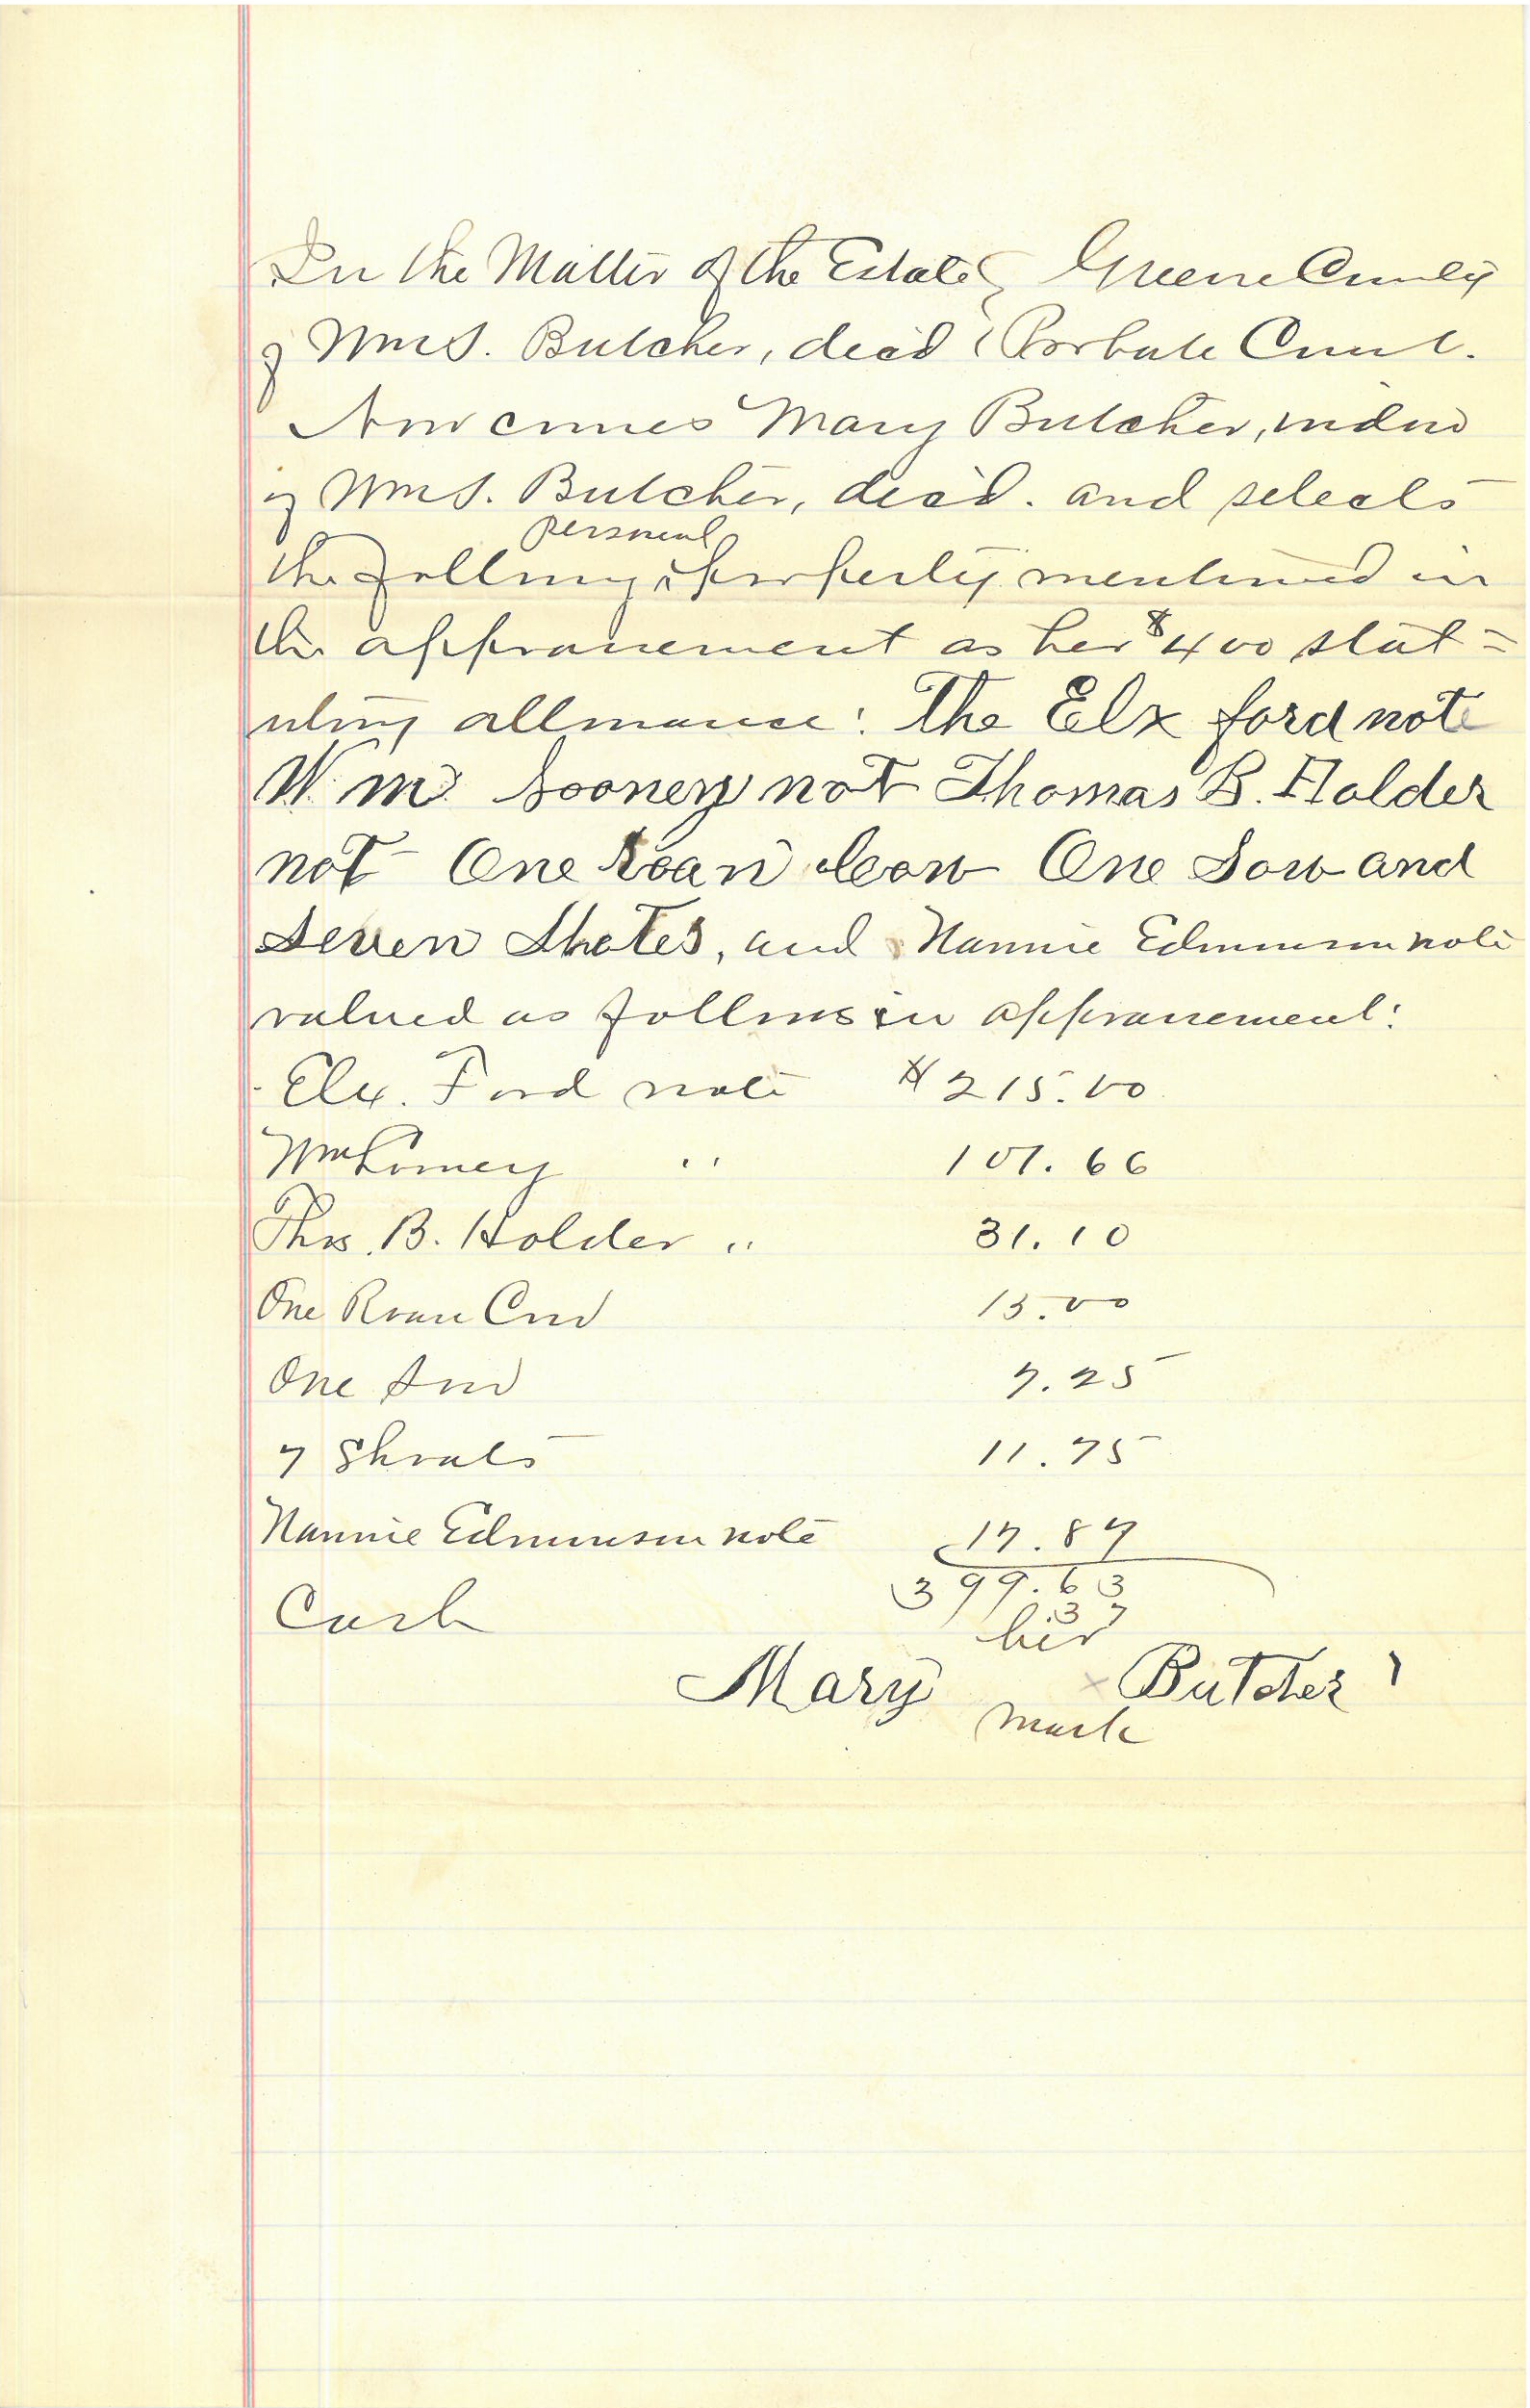 In the Matter of the Estate } Greene County
of Wm S. Butcher, dec'd } Probate Court.
Now comes Mary Butcher, widow
of Wm S. Butcher, dec'd. and selects
personal
the following ^ property mentioned in
the appraisement as her $400 stat=
utory allowance: The Elx ford note
Wm Looney not Thomas B. Holder
not One Roan Cow One Sow and
Seven Shotes, and Nannie Edmunson note
valued as follows in appraisement:
Elx. Ford note $215.00
Wm Looney " 101.66
Thos. B. Holder " 31.10
One Roan Cow 15.00
One Sow 7.25
7 Shoats 11.75
Nannie Edmunson note 17.87
399.63
Cash .37
her
Mary x Butcher
mark